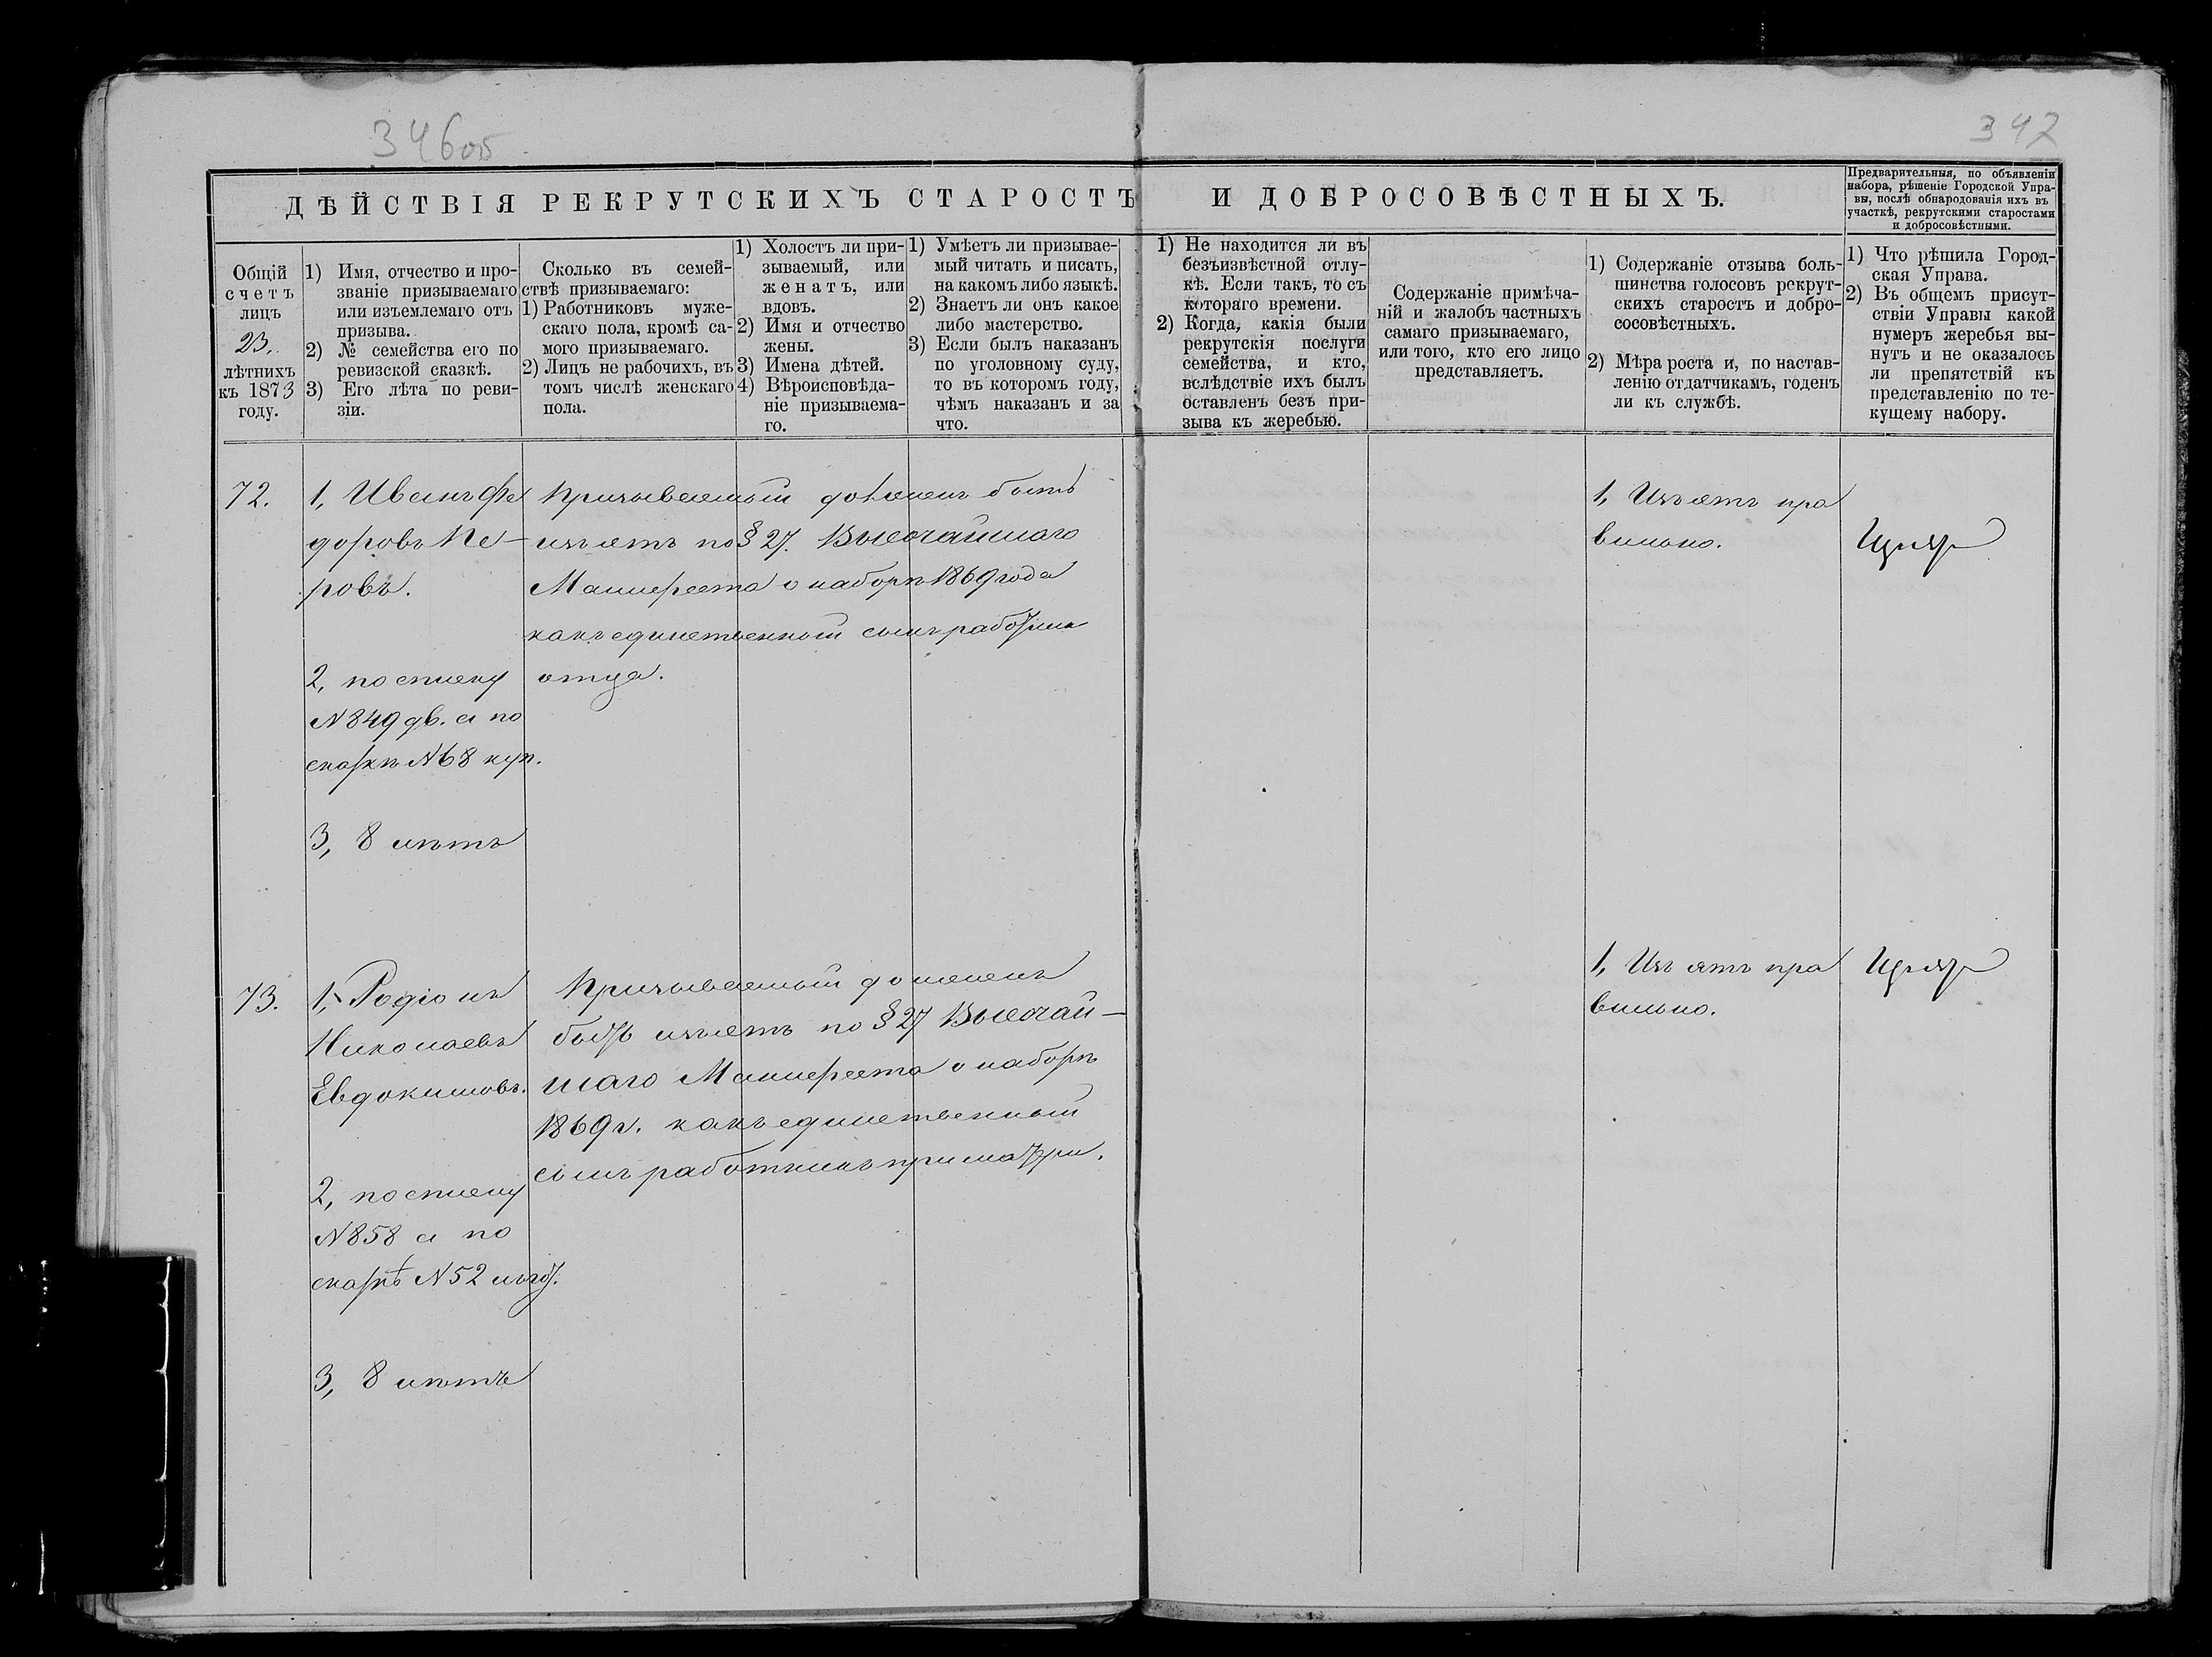 346об
342
ДѢЙСТВІЯ РЕКРУТСКИХЪ СТАРОСТЪ И ДОБРОСОВѢСТНЫХЪ.
Предварительныя, по объявленіи
набора, рѣшеніе Городской Упра-
вы, послѣ обнародованія ихъ въ
участкѣ, рекрутскими старостами
и добросовѣстными.
Общій
счетъ
лицъ
23,
лѣтнихъ
къ 1873
году.
1) Имя, отчество и про-
званіе призываемаго
или изъемлемаго отъ
призыва.
2) № семейства его по
ревизской сказкѣ.
3) Его лѣта по реви-
зіи.
Сколько въ семей-
ствѣ призываемаго:
1) Работниковъ муже-
скаго пола, кромѣ са-
мого призываемаго.
2) Лицъ не рабочихъ, въ
томъ числѣ женскаго
пола.
1) Холостъ ли при-
зываемый, или
женатъ, или
вдовъ.
2) Имя и отчество
жены.
3) Имена дѣтей.
4) Вѣроисповѣда-
ніе призываема-
го.
1) Умѣетъ ли призывае-
мый читать и писать,
на какомъ либо языкѣ.
2) Знаетъ ли онъ какое
либо мастерство.
3) Если былъ наказанъ
по уголовному суду,
то въ которомъ году,
чѣмъ наказанъ и за
что.
1) Не находится ли въ
безъизвѣстной отлу-
кѣ. Если такъ, то съ
котораго времени.
2) Когда, какія были
рекрутскія послуги
семейства, и кто,
вслѣдствіе ихъ былъ
оставленъ безъ при-
зыва къ жеребью.
Содержаніе примѣча-
ній и жалобъ частныхъ
самаго призываемаго,
или того, кто его лицо
представляетъ.
1) Содержаніе отзыва боль-
шинства голосовъ рекрут-
скихъ старостъ и добро-
сосовѣстныхъ.
2) Мѣра роста и, по настав-
ленію отдатчикамъ, годенъ
ли къ службѣ.
1) Что рѣшила Город-
ская Управа.
2) Въ общемъ присут-
ствіи Управы какой
нумеръ жеребья вы-
нутъ и не оказалось
ли препятствій къ
представленію по те-
кущему набору.
72.
1, Иванъ Фе
доровъ Пе-
ровъ.
2, по списку
N 849 дв. а по
сказкѣ N 68 куп.
3, 8 лѣтъ
Призываемый долженъ быть
изъятъ по § 27. Высочайшаго
Манифеста о наборѣ 1869 года
какъ единственный сынъ работника
отца.
1, Изъятъ пра
вильно.
73.
1, Родіонъ
Николаевъ
Евдокимовъ.
2, по списку
N 858 а по
сказкѣ N 52
3, 8 лѣтъ
Призываемый долженъ
быть изъятъ по § 27 Высочай-
шаго Манифеста о наборѣ
1869 г. какъ единственный
сынъ работникъ при матери.
1, Изъятъ пра
вильно.